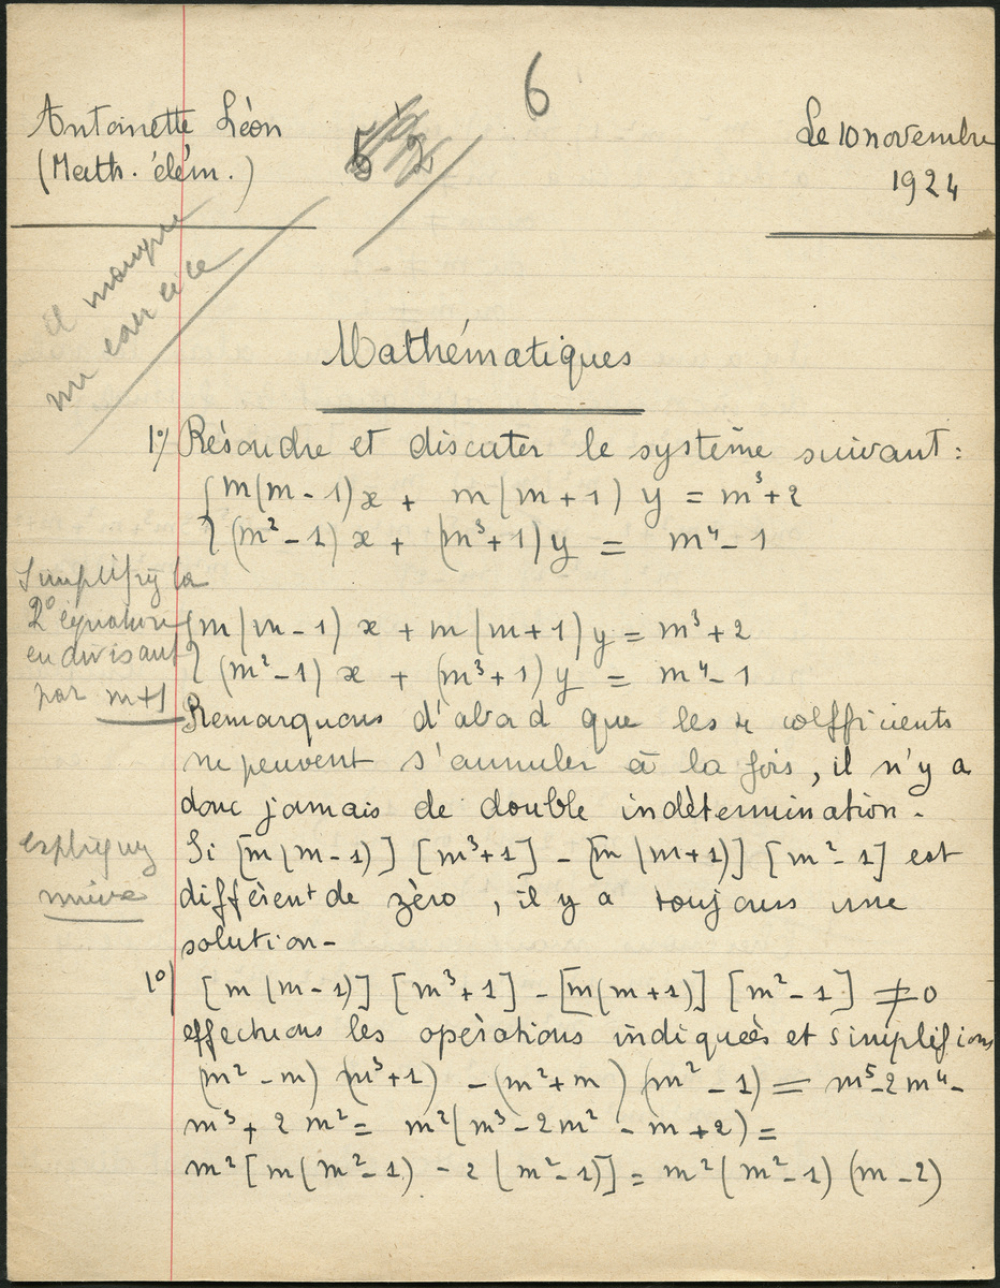 6
Antoinette Léon
(Math. élém.)
5 1/2
Le 10 novembre
1924
il manque
un exercice
Mathématiques
1°/ Résoudre et discuter le système suivant :
{ m(m - 1)x + m(m + 1) y = m³ + 2
(m² - 1) x + (m³ + 1) y = m⁴ - 1
Simplifiez la
2° équation
en divisant
par m+1
{ m(m - 1) x + m(m + 1) y = m³ + 2
(m² - 1) x + (m³ + 1) y = m⁴ - 1
Remarquons d'abord que les 4 coefficients
ne peuvent s'annuler à la fois, il n'y a
donc jamais de double indétermination.
Si [m(m - 1)] [m³ + 1] - [m(m + 1)] [m² - 1] est
différent de zéro, il y a toujours une
solution -
expliquez
mieux
1°) [m(m - 1)] [m³ + 1] - [m(m + 1)] [m² - 1] ≠ 0
effectuons les opérations indiquées et simplifions
(m² - m) (m³ + 1) - (m² + m) (m² - 1) = m⁵ - 2m⁴ -
m³ + 2m² = m²(m³ - 2m² - m + 2) =
m² [m(m² - 1) - 2 (m² - 1)] = m² (m² - 1) (m - 2)